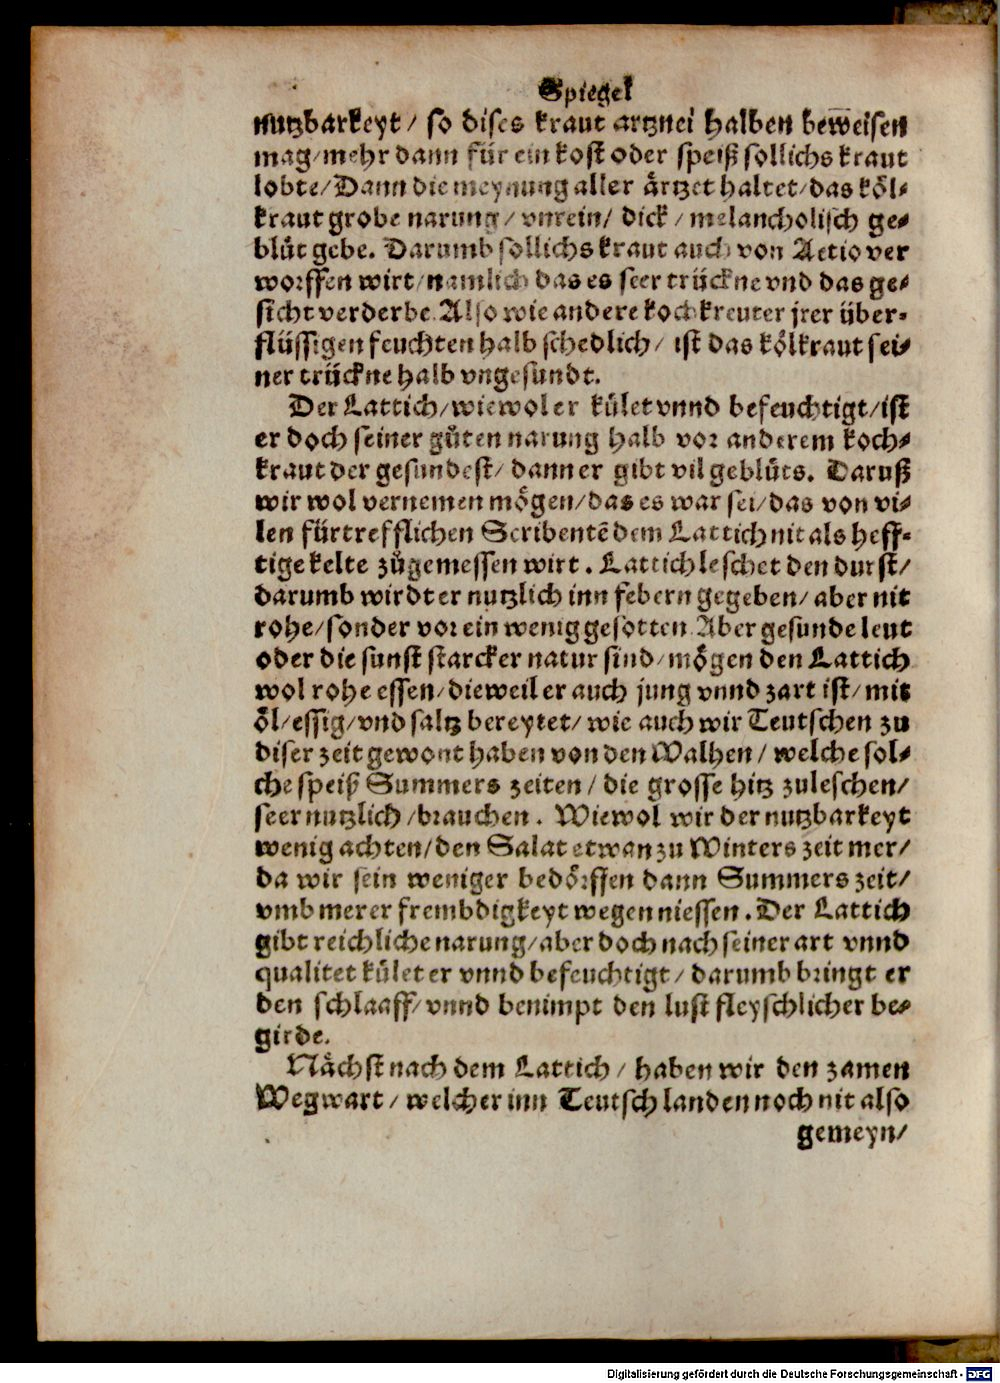 Spiegel
nutzbarkeyt / so dises kraut artznei halben beweisen
mag/mehr dann für ein kost oder speiß sollichs kraut
lobte/Dann die meynung aller ärtzet haltet/das köl-
kraut grobe narung/vnrein/ dick / melancholisch ge-
blüt gebe. Darumb sollichs kraut auch von Aetio ver
worffen wirt/namlich das es seer trückne vnd das ge-
sicht verderbe. Also wie andere kochkreuter jrer über-
flüssigen feuchten halb schedlich/ ist das kölkraut sei-
ner trückne halb vngesundt.
Der Lattich/wiewol er kület vnnd befeuchtigt/ist
er doch seiner gůten narung halb vor anderem koch-
kraut der gesundest/ dann er gibt vil geblüts. Daruß
wir wol vernemen mögen/das es war sei/das von vi-
len fürtrefflichen Scribentē dem Lattich nit als heff-
tige kelte zůgemessen wirt. Lattich leschet den durst/
darumb wirdt er nutzlich inn febern gegeben/ aber nit
rohe/sonder vor ein wenig gesotten. Aber gesunde leut
oder die sunst starcker natur sind/mögen den Lattich
wol rohe essen/dieweil er auch jung vnnd zart ist/mit
öl/essig/vnd saltz bereytet/ wie auch wir Teutschen zu
diser zeit gewont haben von den Walhen/ welche sol-
che speiß Summers zeiten/ die grosse hitz zuleschen/
seer nutzlich/brauchen. Wiewol wir der nutzbarkeyt
wenig achten/den Salat etwan zu Winters zeit mer/
da wir sein weniger bedörffen dann Summers zeit/
vmb merer frembdigkeyt wegen niessen. Der Lattich
gibt reichliche narung/aber doch nach seiner art vnnd
qualitet kület er vnnd befeuchtigt/ darumb bringt er
den schlaaff/vnnd benimpt den lust fleyschlicher be-
girde.
Nächst nach dem Lattich / haben wir den zamen
Wegwart / welcher inn Teutschlanden noch nit also
gemeyn/
Digitalisierung gefördert durch die Deutsche Forschungsgemeinschaft - DFG